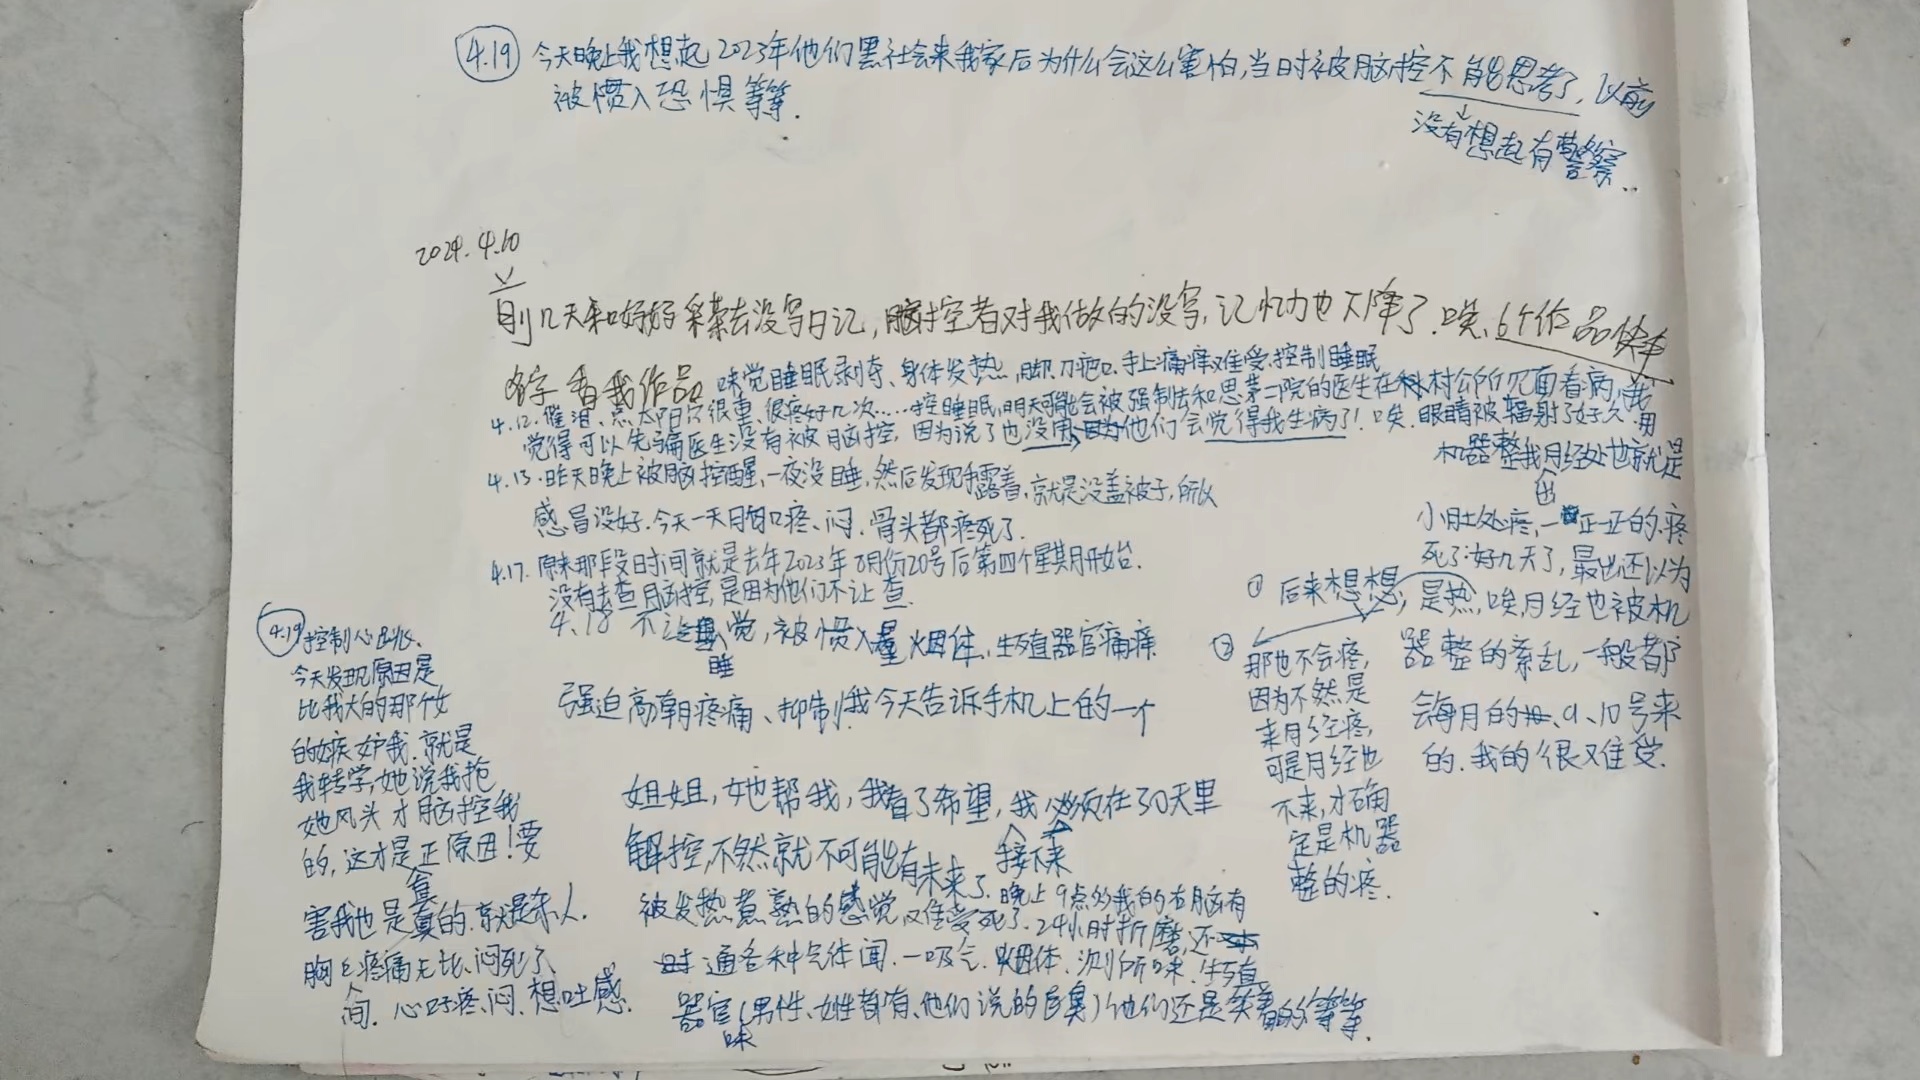 4.19 今天晚上我想起2023年他们黑社会来我家后为什么会这么害怕,当时被脑控不能思考了,以前
没有想起有警察..
被惯入恐惧等等.
2024.4.10
前几天和妈妈采菜去没写日记,脑控者对我做的没写,记忆力也下降了.唉、6个作品快来
名字 看我作品 味觉睡眠剥夺、身体发热,脚刀疤口.手上痛痒难受.控制睡眠
4.12.催泪、点太阳穴很重、很疼好几次……控睡眠,明天可能会被强制法和思茅二院的医生在村公所见面看病,我
觉得可以先骗医生没有被脑控,因为说了也没用,因为他们会觉得我生病了!唉.眼睛被辐射了好久.用
机器整我月经处也就是
小肚处疼,一正一正的.疼
死了.好几天了,最出还以为
是热,唉月经也被机
器整的紊乱,一般都
会每月的9、10号来
的.我的很难受.
4.13.昨天晚上被脑控醒、一夜没睡,然后发现手露着、就是没盖被子,所以
感冒没好.今天一天胸口疼、闷.骨头都疼死了.
4.17.原来那段日时间就是去年2023年8月份20号后第四个星期开始.
没有去查脑控,是因为他们不让查.
4.18 不让睡觉,被惯入量烟体、生殖器官痛痒
强迫高朝疼痛、抑制!我今天告诉手机上的一个
姐姐,她帮我,我看了希望,我接下来必须在30天里
解控,不然就不可能有未来了.晚上9点多我的右脑有
被发热煮熟的感觉难受死了.24小时折磨,还
通各种气体闻.一吸气.烟体.测所味.生殖
器官味(男性、女性都有、他们说的巨臭)他们还是笑着的等等.
① 后来想想,
② 那也不会疼,
因为不然是
来月经疼,
可是月经也
不来,才确
定是机器
整的疼.
4.19 控制心跳.
今天发现原因是
比我大的那个女
的嫉妒我.就是
我转学,她说我抢
她风头 才脑控我
的,这才是真正原因!要
害我也是真的.就是杀人.
胸间疼痛无比、闷死了、
心好疼、闷、想吐感.